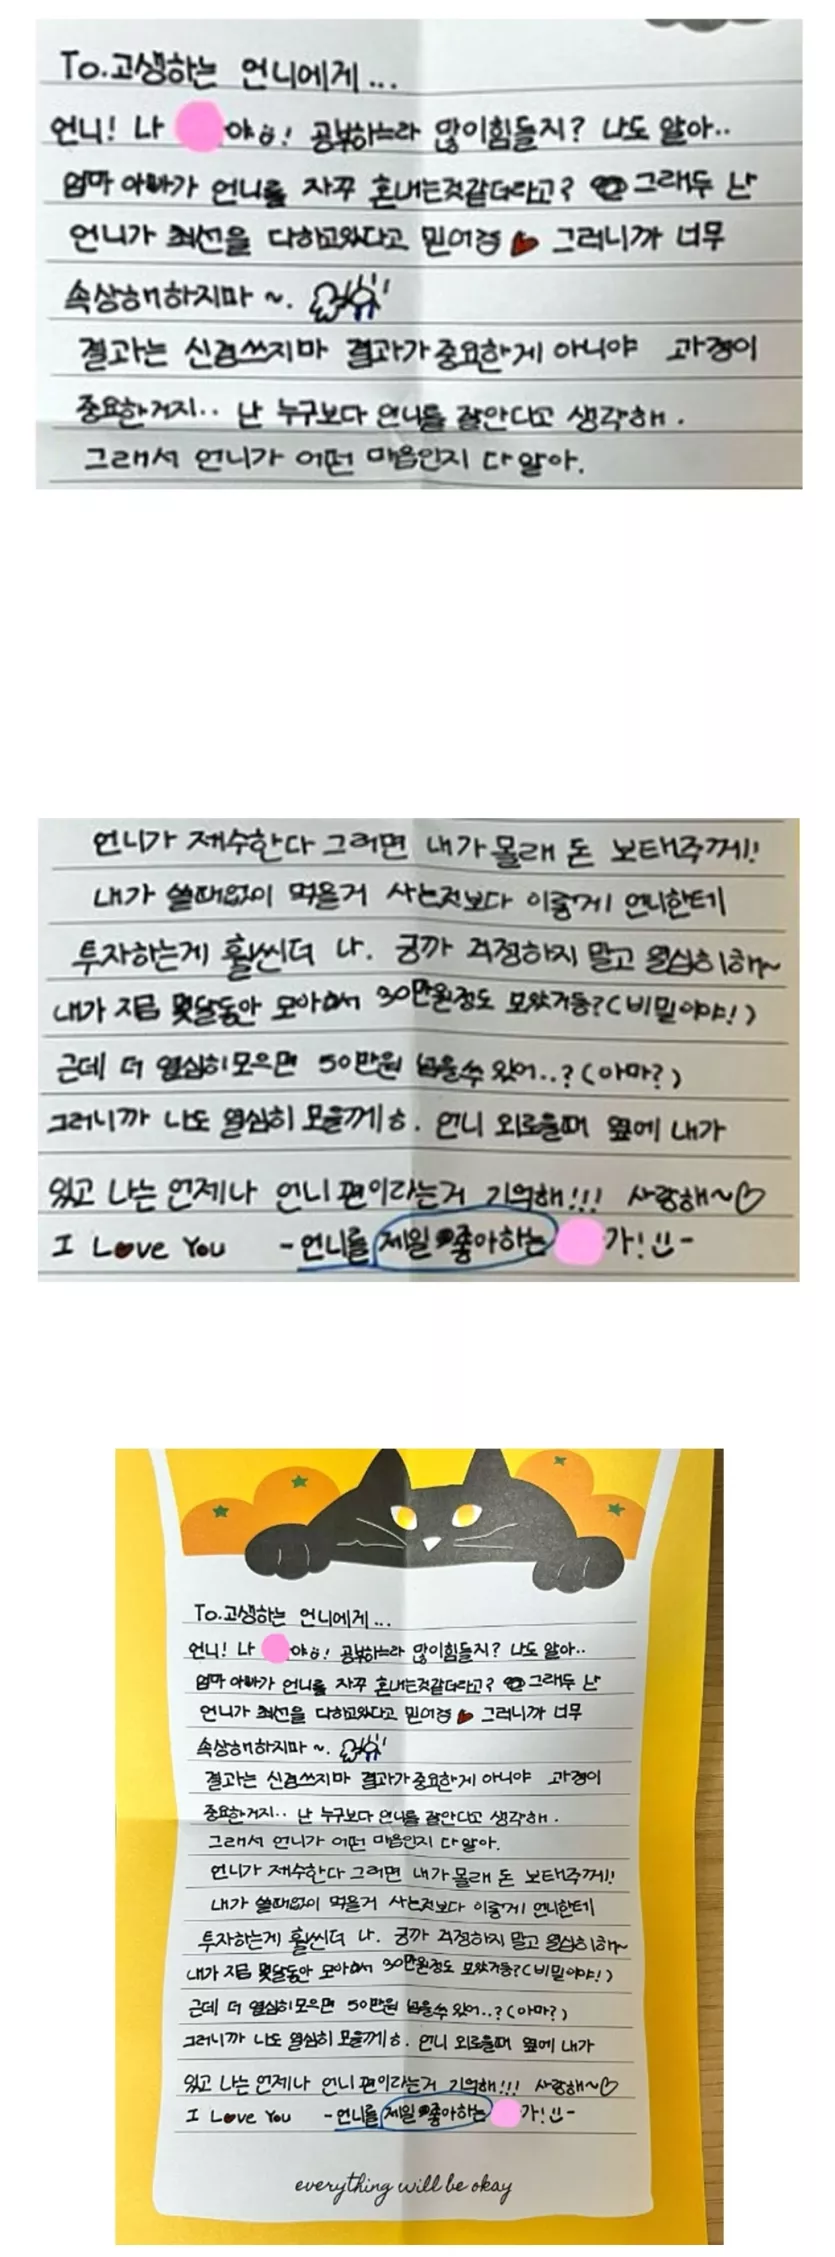 To.고생하는 언니에게...
언니! 나 야ㅎ! 공부하느라 많이힘들지? 나도 알아..
엄마 아빠가 언니를 자꾸 혼내는것같더라고? 그래두 난
언니가 최선을 다하고있다고 믿어 그러니까 너무
속상해하지마 ~.
결과는 신경쓰지마 결과가 중요한게 아니야 과정이
중요한거지.. 난 누구보다 언니를 잘안다고 생각해.
그래서 언니가 어떤 마음인지 다 알아.
언니가 재수한다 그러면 내가 몰래 돈 보태주께!
내가 쓸때없이 먹을거 사는것보다 이렇게 언니한테
투자하는게 훨씬더 나. 긍까 걱정하지 말고 열심히해~
내가 지금 몇달동안 모아서 30만원정도 모았거등?(비밀이야!)
근데 더 열심히모으면 50만원 넘을수 있어..?(아마?)
그러니까 나도 열심히 모을께ㅎ. 언니 외로울때 옆에 내가
있고 나는 언제나 언니 편이라는거 기억해!!! 사랑해~♡
I Love You -언니를 제일 좋아하는 가!-
To.고생하는 언니에게...
언니! 나 야ㅎ! 공부하느라 많이힘들지? 나도 알아..
엄마 아빠가 언니를 자꾸 혼내는것같더라고? 그래두 난
언니가 최선을 다하고있다고 믿어 그러니까 너무
속상해하지마 ~.
결과는 신경쓰지마 결과가 중요한게 아니야 과정이
중요한거지.. 난 누구보다 언니를 잘안다고 생각해.
그래서 언니가 어떤 마음인지 다 알아.
언니가 재수한다 그러면 내가 몰래 돈 보태주께!
내가 쓸때없이 먹을거 사는것보다 이렇게 언니한테
투자하는게 훨씬더 나. 긍까 걱정하지 말고 열심히해~
내가 지금 몇달동안 모아서 30만원정도 모았거등?(비밀이야!)
근데 더 열심히모으면 50만원 넘을수 있어..?(아마?)
그러니까 나도 열심히 모을께ㅎ. 언니 외로울때 옆에 내가
있고 나는 언제나 언니 편이라는거 기억해!!! 사랑해~♡
I Love You -언니를 제일 좋아하는 가!-
everything will be okay